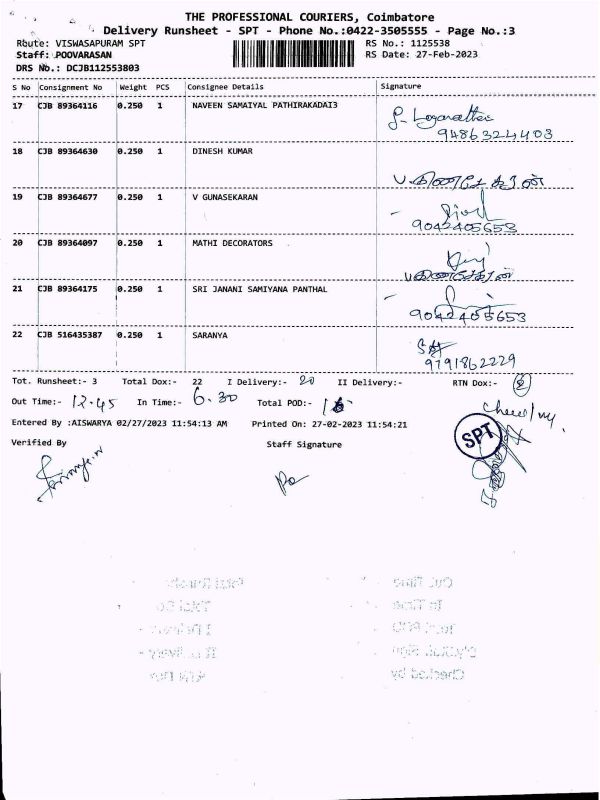 THE PROFESSIONAL COURIERS, Coimbatore
Delivery Runsheet - SPT - Phone No.:0422-3505555 - Page No.:3
Route: VISWASAPURAM SPT RS No.: 1125538
Staff: POOVARASAN RS Date: 27-Feb-2023
DRS No.: DCJB112553803
S No Consignment No Weight PCS Consignee Details Signature
17 CJB 89364116 0.250 1 NAVEEN SAMAIYAL PATHIRAKADAI3
9486324403
18 CJB 89364630 0.250 1 DINESH KUMAR
19 CJB 89364677 0.250 1 V GUNASEKARAN
9042405653
20 CJB 89364097 0.250 1 MATHI DECORATORS
21 CJB 89364175 0.250 1 SRI JANANI SAMIYANA PANTHAL
9042405653
22 CJB 516435387 0.250 1 SARANYA
9791862229
Tot. Runsheet:- 3 Total Dox:- 22 I Delivery:- 20 II Delivery:- RTN Dox:- 2
Out Time:- 12.45 In Time:- 6.30 Total POD:-
Entered By :AISWARYA 02/27/2023 11:54:13 AM Printed On: 27-02-2023 11:54:21
SPT
Verified By Staff Signature